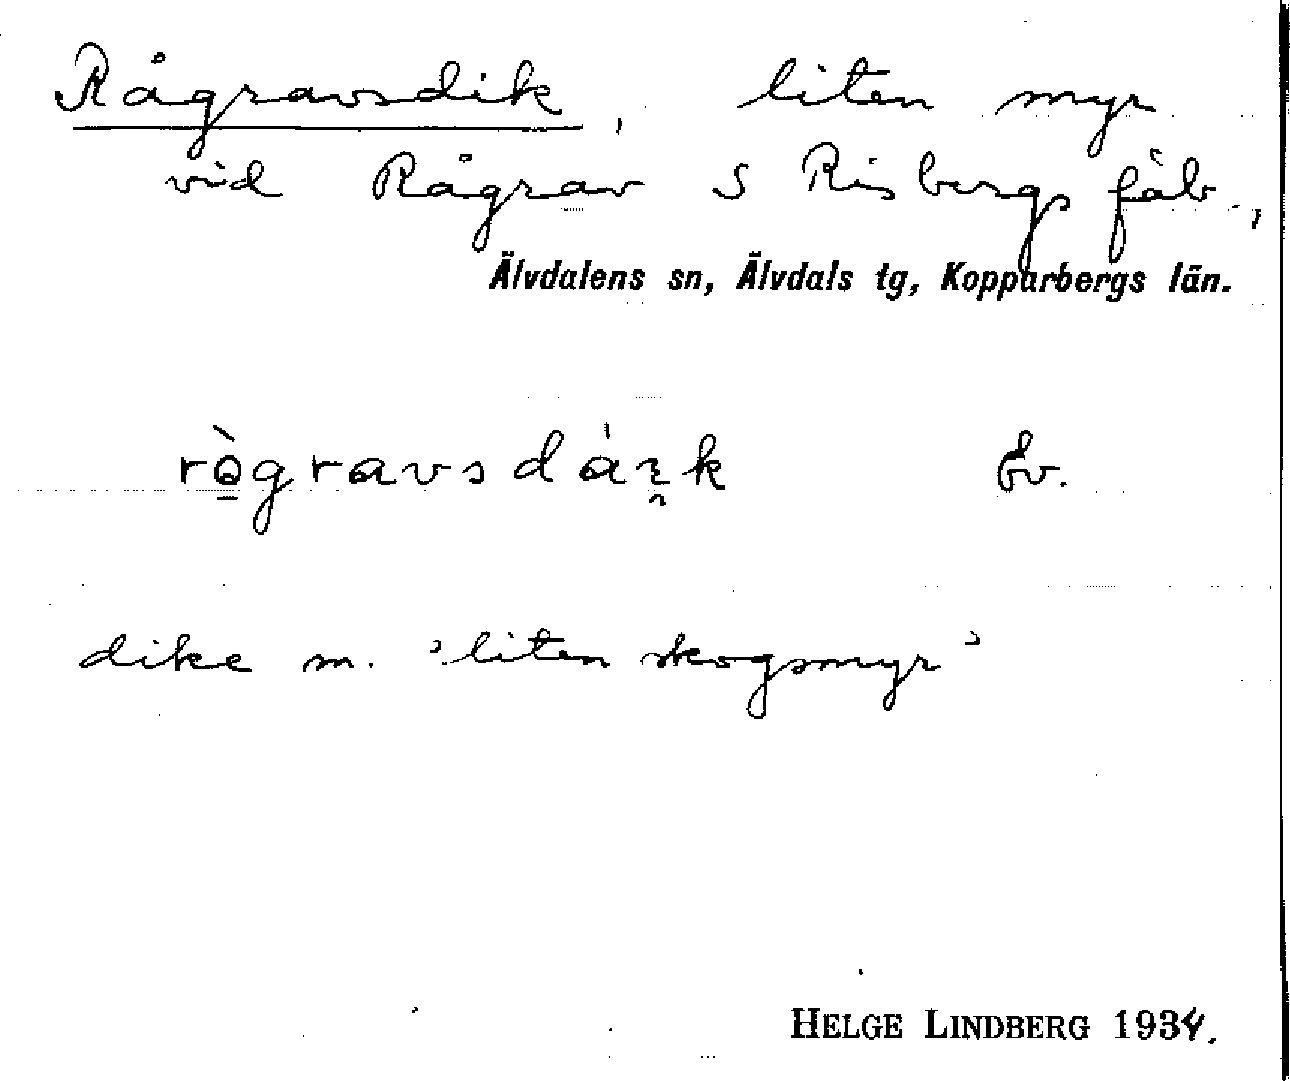 Rågravsdik, liten myr
vid Rågrav S Risbergs fäb.,
Älvdalens sn, Älvdals tg, Kopparbergs län.
Ev.
dike m. 'liten skogsmyr'
HELGE LINDBERG 1934.